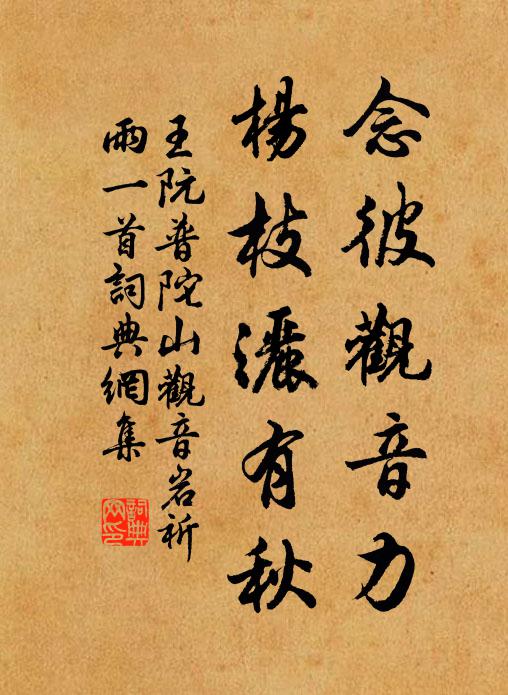 念彼觀音力
楊枝灑有秋
王阮普陀山觀音岩祈
雨一首詞典網集
詞典网印